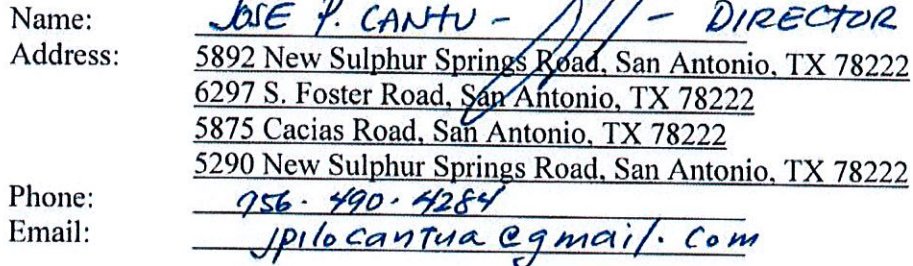 Name: JOSE P. CANTU - - DIRECTOR
Address: 5892 New Sulphur Springs Road, San Antonio, TX 78222
6297 S. Foster Road, San Antonio, TX 78222
5875 Cacias Road, San Antonio, TX 78222
5290 New Sulphur Springs Road, San Antonio, TX 78222
Phone: 956 · 490 · 4284
Email: jpilocantua@gmail.com